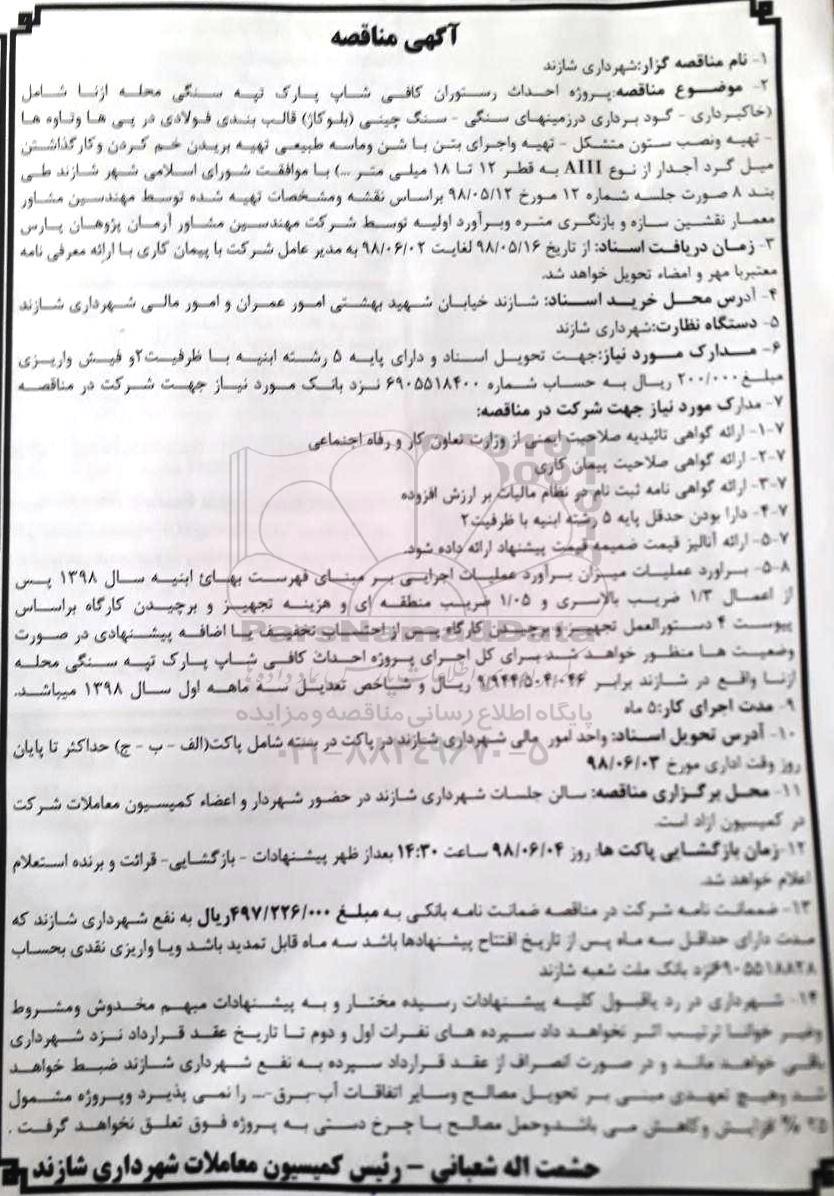 آگهی مناقصه
۱- نام مناقصه گزار:شهرداری شازند
۲- موضوع مناقصه:پروژه احداث رستوران کافی شاپ پارک تپه سنگی محله ازنا شامل
(خاکبرداری - گود برداری درزمینهای سنگی - سنگ چینی (بلوکاژ) قالب بندی فولادی در پی ها وتاوه ها
- تهیه ونصب ستون متشکل - تهیه واجرای بتن با شن وماسه طبیعی تهیه بریدن خم کردن وکارگذاشتن
میل گرد آجدار از نوع AIII به قطر ۱۲ تا ۱۸ میلی متر ...) با موافقت شورای اسلامی شهر شازند طی
بند ۸ صورت جلسه شماره ۱۲ مورخ ۹۸/۰۵/۱۲ براساس نقشه ومشخصات تهیه شده توسط مهندسین مشاور
معمار نقشین سازه و بازنگری متره وبرآورد اولیه توسط شرکت مهندسین مشاور آرمان پژوهان پارس
۳- زمان دریافت اسناد: از تاریخ ۹۸/۰۵/۱۶ لغایت ۹۸/۰۶/۰۲ به مدیر عامل شرکت با پیمان کاری با ارائه معرفی نامه
معتبربا مهر و امضاء تحویل خواهد شد.
۴- آدرس محل خرید اسناد: شازند خیابان شهید بهشتی امور عمران و امور مالی شهرداری شازند
۵- دستگاه نظارت:شهرداری شازند
۶- مدارک مورد نیاز:جهت تحویل اسناد و دارای پایه ۵ رشته ابنیه با ظرفیت۲و فیش واریزی
مبلغ۲۰۰/۰۰۰ ریال به حساب شماره ۶۹۰۵۵۱۸۴۰۰ نزد بانک مورد نیاز جهت شرکت در مناقصه
۷- مدارک مورد نیاز جهت شرکت در مناقصه:
۷-۱- ارائه گواهی تائیدیه صلاحیت ایمنی از وزارت تعاون کار و رفاه اجتماعی
۷-۲- ارائه گواهی صلاحیت پیمان کاری
۷-۳- ارائه گواهی نامه ثبت نام در نظام مالیات بر ارزش افزوده
۷-۴- دارا بودن حدقل پایه ۵ رشته ابنیه با ظرفیت۲
۷-۵- ارائه آنالیز قیمت ضمیمه قیمت پیشنهاد ارائه داده شود.
۸-۵- براورد عملیات میزان برآورد عملیات اجرایی بر مبنای فهرست بهائ ابنیه سال ۱۳۹۸ پس
از اعمال ۱/۳ ضریب بالاسری و ۱/۰۵ ضریب منطقه ای و هزینه تجهیز و برچیدن کارگاه براساس
پیوست ۴ دستورالعمل تجهیز و برچیدن کارگاه پس از احتساب تخفیف یا اضافه پیشنهادی در صورت
وضعیت ها منظور خواهد شد برای کل اجرای پروژه احداث کافی شاپ پارک تپه سنگی محله
ازنا واقع در شازند برابر ۹/۹۴۴/۵۰۴/۰۴۶ ریال و شاخص تعدیل سه ماهه اول سال ۱۳۹۸ میباشد.
۹- مدت اجرای کار:۵ ماه
۱۰- آدرس تحویل اسناد: واحد امور مالی شهرداری شازند در پاکت در بسته شامل پاکت(الف - ب - ج) حداکثر تا پایان
روز وقت اداری مورخ ۹۸/۰۶/۰۳
۱۱- محل برگزاری مناقصه: سالن جلسات شهرداری شازند در حضور شهردار و اعضاء کمیسیون معاملات شرکت
در کمیسیون ازاد است.
۱۲-زمان بازگشایی پاکت ها: روز ۹۸/۰۶/۰۴ ساعت ۱۴:۳۰ بعداز ظهر پیشنهادات - بازگشایی- قرائت و برنده استعلام
اعلام خواهد شد.
۱۳- ضمانت نامه شرکت در مناقصه ضمانت نامه بانکی به مبلغ ۴۹۷/۲۲۶/۰۰۰ریال به نفع شهرداری شازند که
مدت دارای حداقل سه ماه پس از تاریخ افتتاح پیشنهادها باشد سه ماه قابل تمدید باشد ویا واریزی نقدی بحساب
۶۹۰۵۵۱۸۸۲۸نزد بانک ملت شعبه شازند
۱۴- شهرداری در رد یاقبول کلیه پیشنهادات رسیده مختار و به پیشنهادات مبهم مخدوش ومشروط
وغیر خوانا ترتیب اثر نخواهد داد سپرده های نفرات اول و دوم تا تاریخ عقد قرارداد نزد شهرداری
باقی خواهد ماند و در صورت انصراف از عقد قرارداد سپرده به نفع شهرداری شازند ضبط خواهد
شد وهیچ تعهدی مبنی بر تحویل مصالح وسایر اتفاقات آب-برق-... را نمی پذیرد وپروژه مشمول
۲۵ % افزایش وکاهش می باشدوحمل مصالح با چرخ دستی به پروژه فوق تعلق نخواهد گرفت .
حشمت اله شعبانی - رئیس کمیسیون معاملات شهرداری شازند
ParsNamadData
پایگاه اطلاع رسانی مناقصه و مزایده
۰۲۱-۸۸۳۴۹۶۷۰-۵